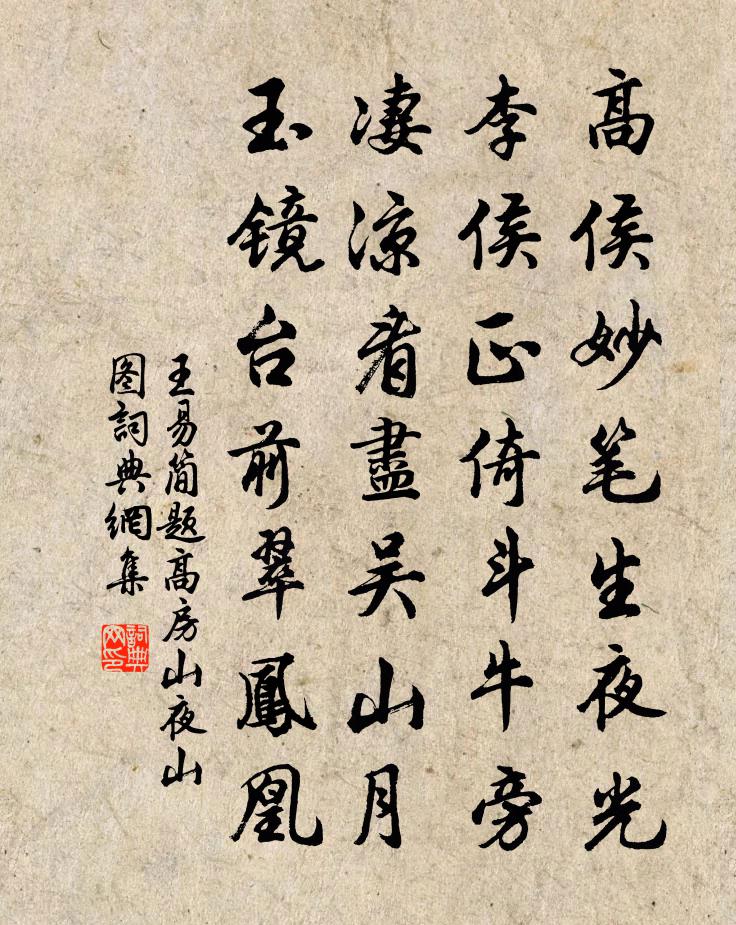 高侯妙笔生夜光
李侯正倚斗牛旁
凄凉看盡吴山月
玉镜台前翠鳳凰
王易简题高房山夜山
图詞典網集
詞典网印